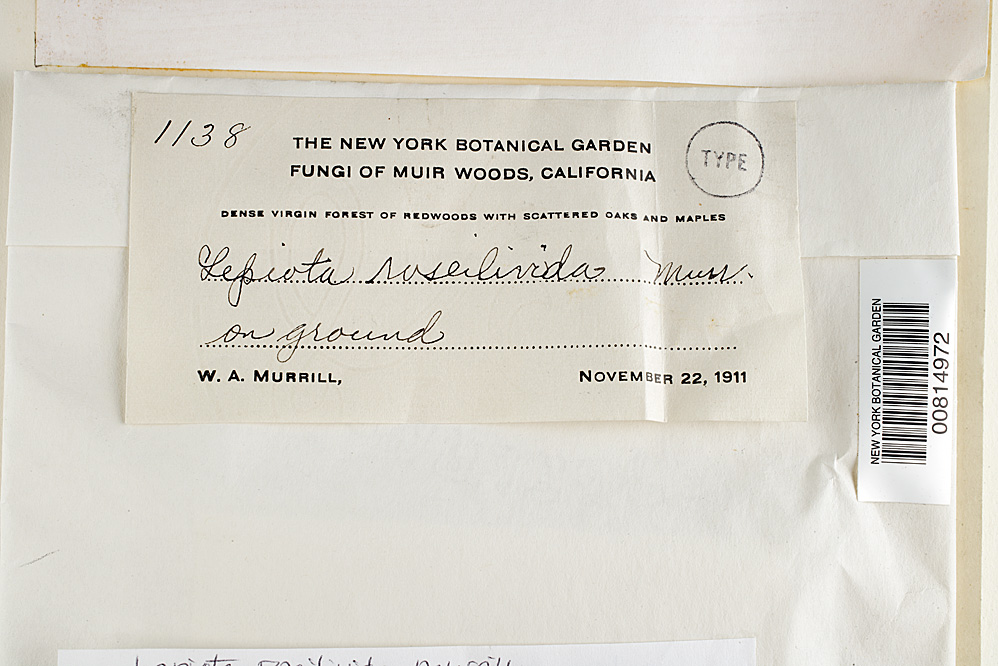 1138
THE NEW YORK BOTANICAL GARDEN
FUNGI OF MUIR WOODS, CALIFORNIA
TYPE
DENSE VIRGIN FOREST OF REDWOODS WITH SCATTERED OAKS AND MAPLES
Lepiota roseilivida Murr.
on ground
W. A. MURRILL,
NOVEMBER 22, 1911
NEW YORK BOTANICAL GARDEN
00814972
Lepiota